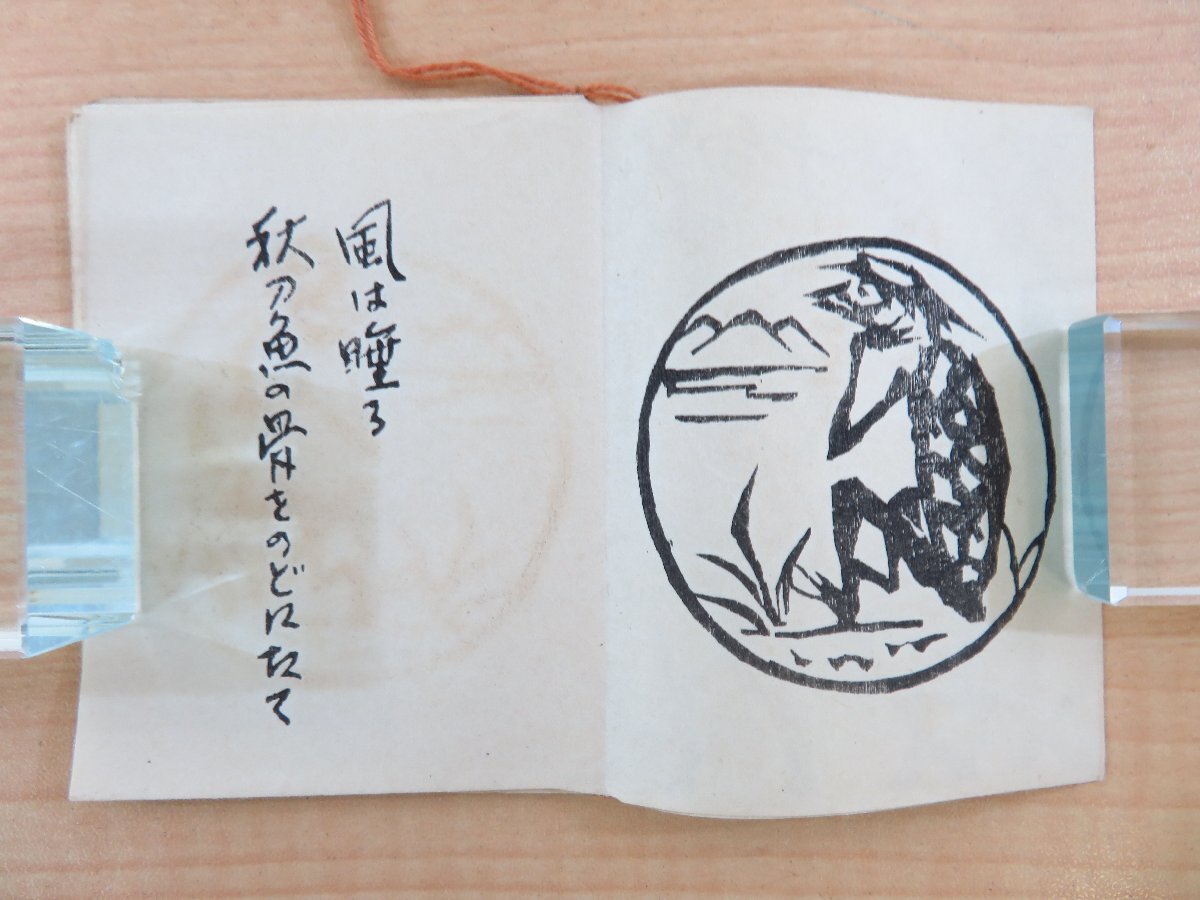 風は唾る
秋刀魚の骨をのどにたて